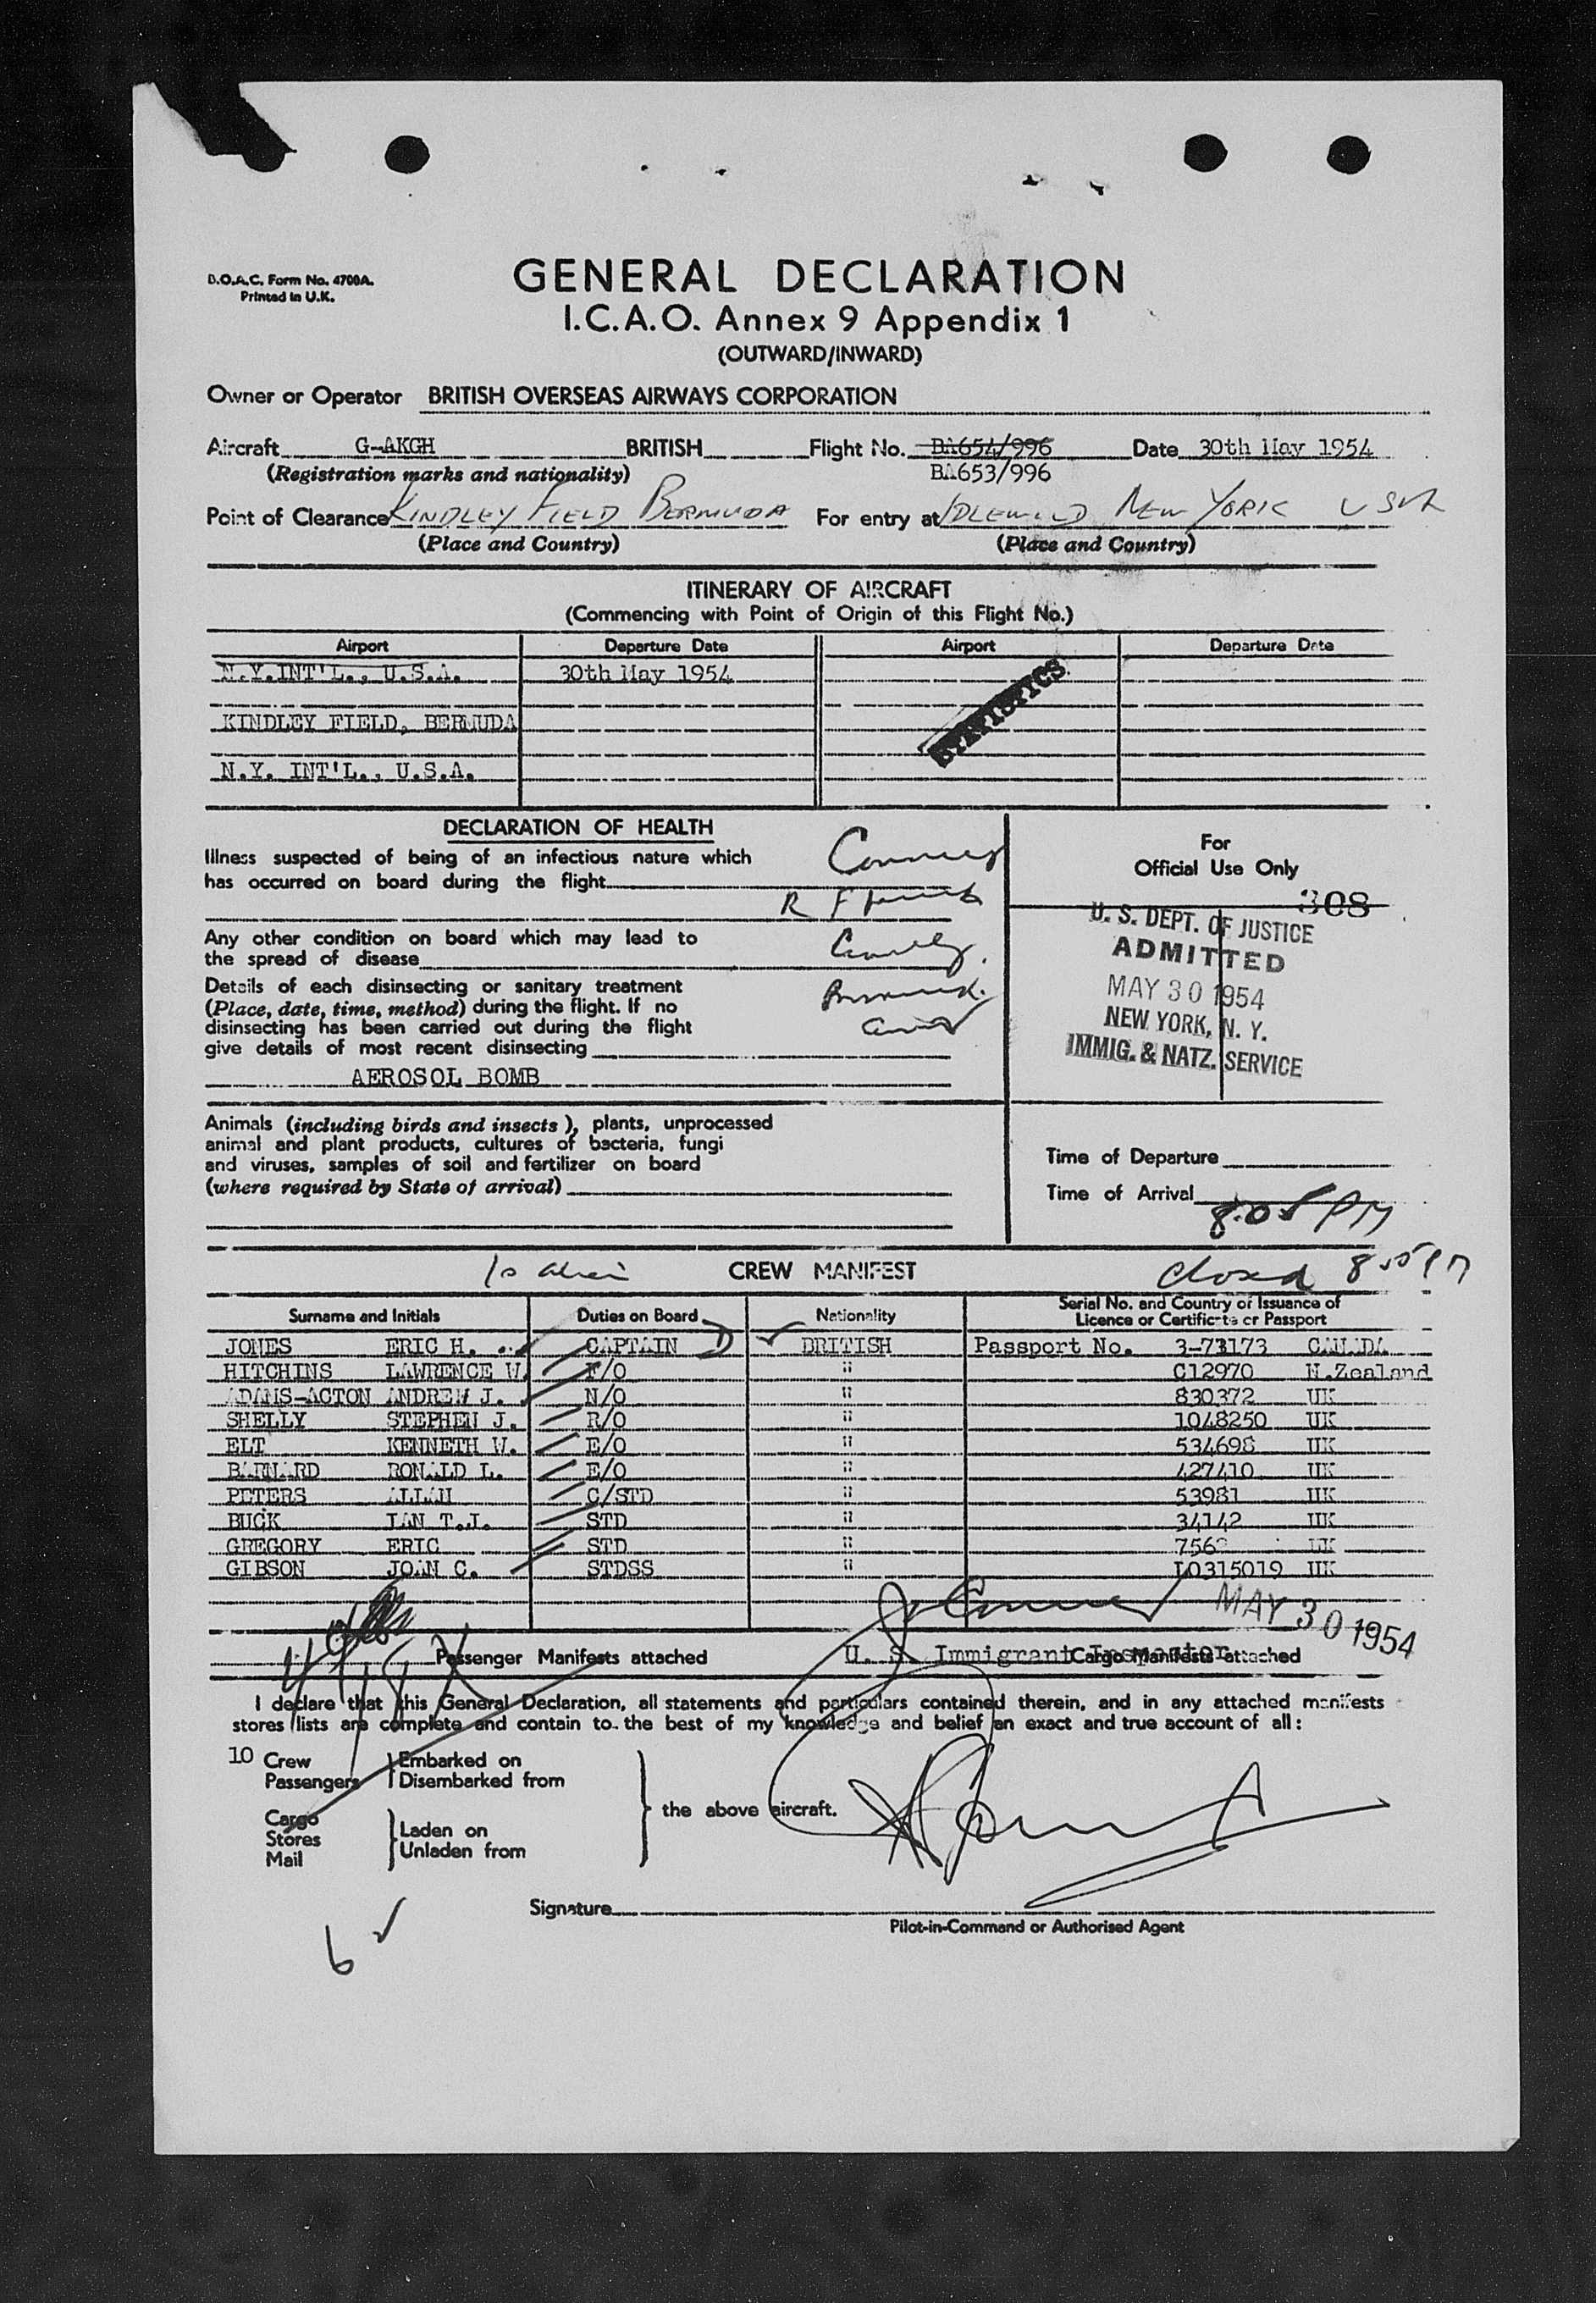 B.O.A.C. Form No. 4700A.
Printed in U.K.
GENERAL DECLARATION
I.C.A.O. Annex 9 Appendix 1
(OUTWARD/INWARD)
Owner or Operator BRITISH OVERSEAS AIRWAYS CORPORATION
Aircraft G-AKGH BRITISH Flight No. BA654/996 Date 30th May 1954
(Registration marks and nationality) BA653/996
Point of Clearance KINDLEY FIELD BERMUDA For entry at IDLEWILD NEW YORK USA
(Place and Country) (Place and Country)
ITINERARY OF AIRCRAFT
(Commencing with Point of Origin of this Flight No.)
Airport Departure Date Airport Departure Date
N.Y.INT'L., U.S.A. 30th May 1954
STATISTICS
KINDLEY FIELD, BERMUDA
N.Y. INT'L., U.S.A.
DECLARATION OF HEALTH
For
Official Use Only
Illness suspected of being of an infectious nature which
has occurred on board during the flight
308
U. S. DEPT. OF JUSTICE
ADMITTED
MAY 30 1954
NEW YORK, N. Y.
IMMIG. & NATZ. SERVICE
Any other condition on board which may lead to
the spread of disease
Details of each disinsecting or sanitary treatment
(Place, date, time, method) during the flight. If no
disinsecting has been carried out during the flight
give details of most recent disinsecting
AEROSOL BOMB
Animals (including birds and insects), plants, unprocessed
animal and plant products, cultures of bacteria, fungi
and viruses, samples of soil and fertilizer on board
(where required by State of arrival)
Time of Departure
Time of Arrival
8.05 PM
CREW MANIFEST
closed
Surname and Initials Duties on Board Nationality Serial No. and Country of Issuance of
Licence or Certificate or Passport
JONES ERIC H. CAPTAIN BRITISH Passport No. 3-73173 CANADA
HITCHINS LAWRENCE W. F/O " C12970 N.Zealand
ADAMS-ACTON ANDREW J. N/O " 830372 UK
SHELLY STEPHEN J. R/O " 1048250 UK
ELT KENNETH W. E/O " 534698 UK
BARNARD RONALD L. E/O " 427410 UK
PETERS ALLAN C/STD " 53981 UK
BUCK IAN T.J. STD " 34142 UK
GREGORY ERIC STD " UK
GIBSON JOAN C. STDSS " L0315019 UK
MAY 30 1954
Passenger Manifests attached
U. S. Immigrant Inspector
Cargo Manifests attached
I declare that this General Declaration, all statements and particulars contained therein, and in any attached manifests
stores lists are complete and contain to the best of my knowledge and belief an exact and true account of all:
10 Crew Embarked on
Passengers Disembarked from
the above aircraft.
Cargo
Stores Laden on
Mail Unladen from
Signature
Pilot-in-Command or Authorised Agent
6